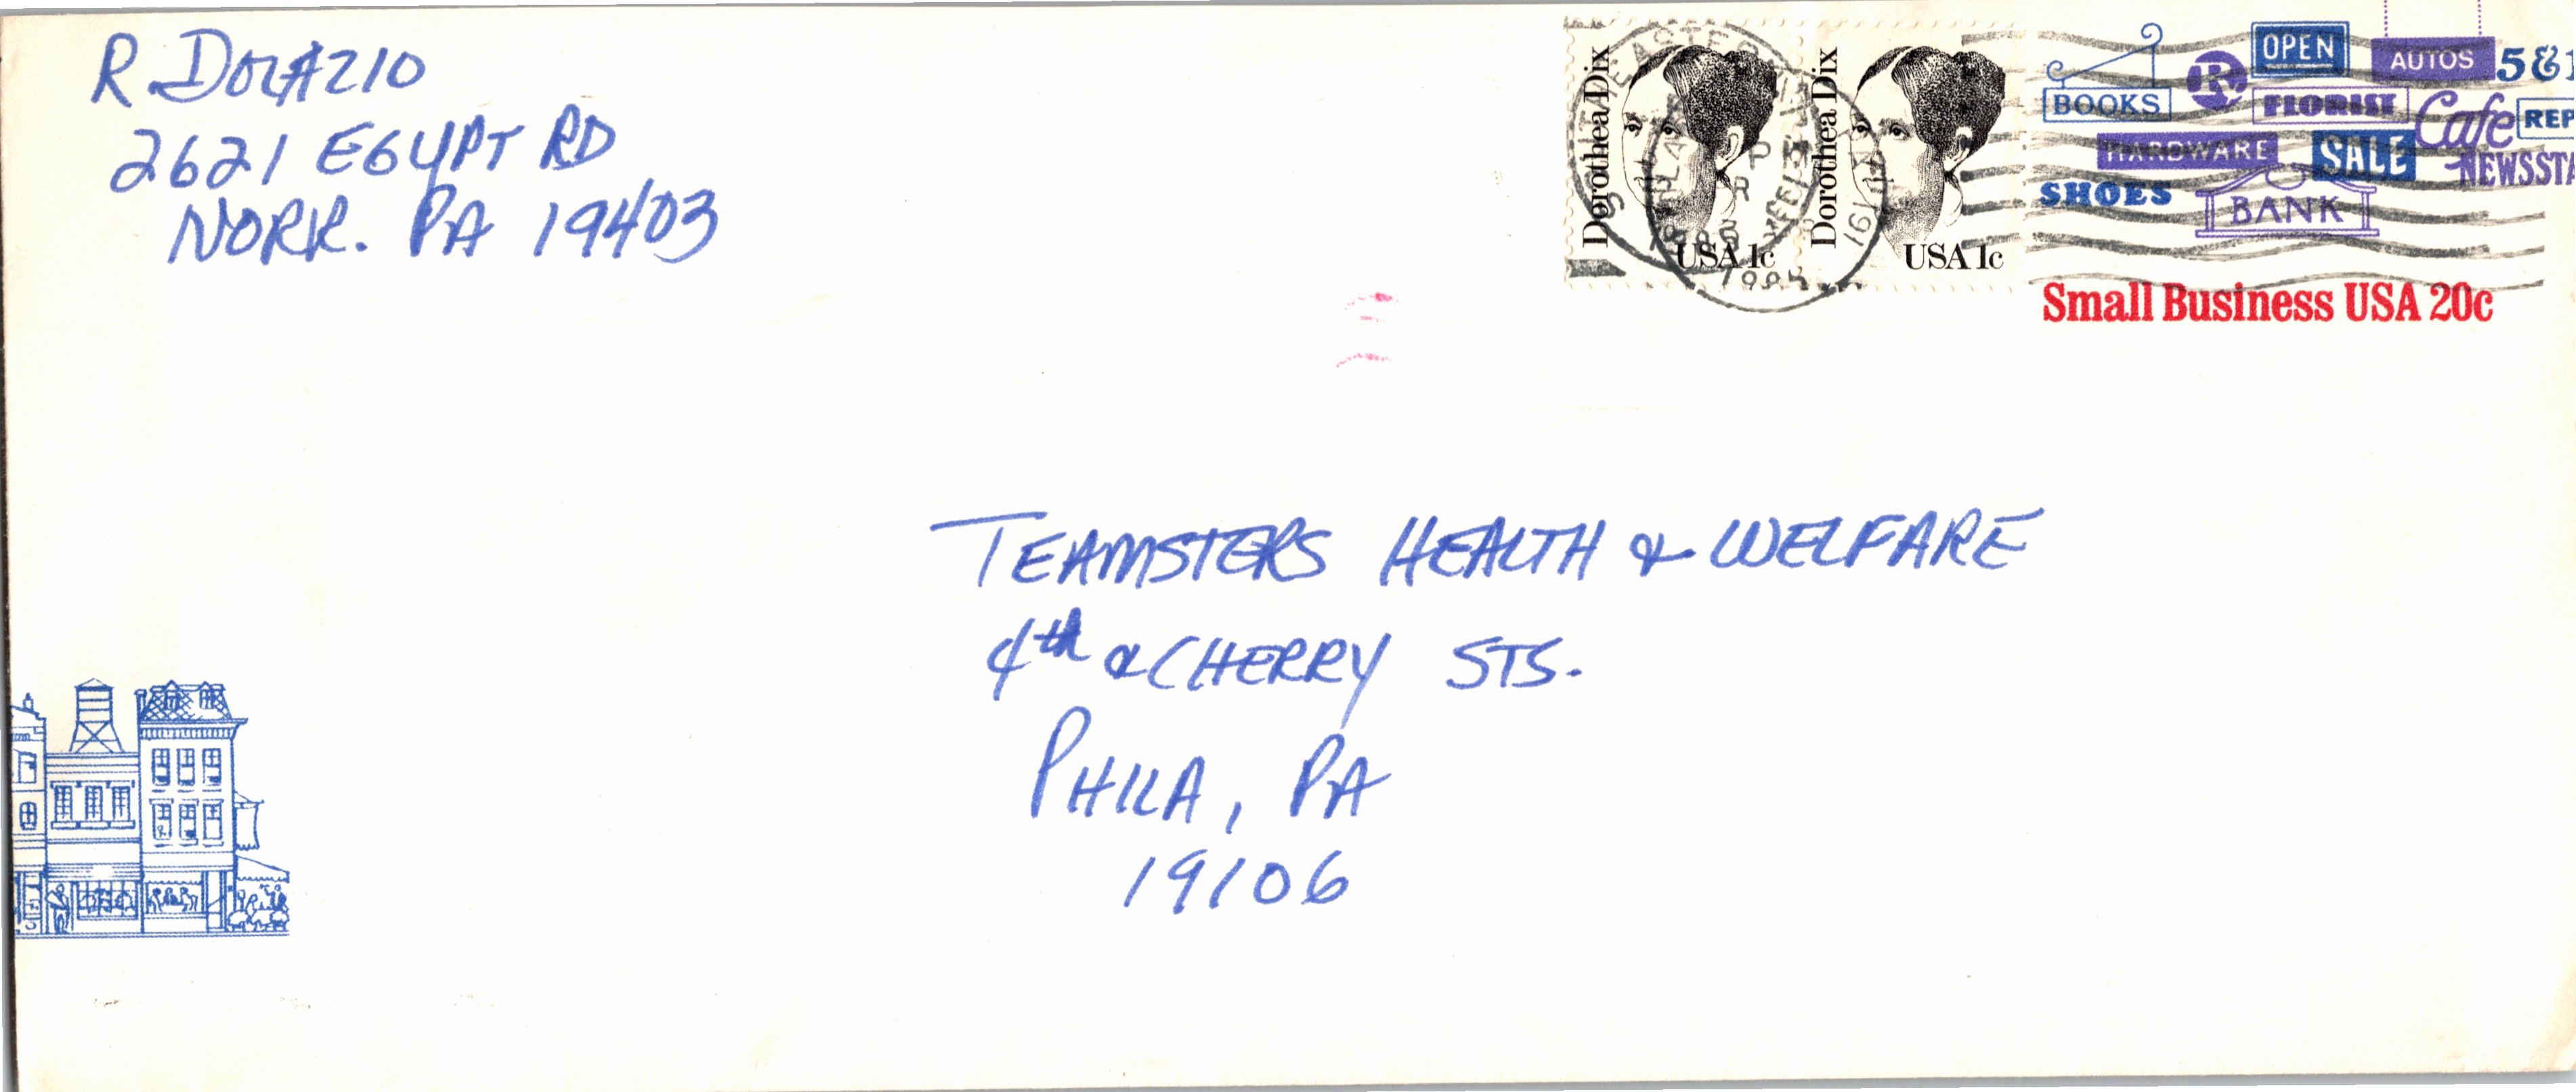 R. DORAZIO
2621 EGYPT RD
NORR. PA 19403
Dorothea Dix
USA 1c
Dorothea Dix
USA 1c
1985
BOOKS
R
OPEN
AUTOS
5&1
FLORIST
Cafe
REP
HARDWARE
SALE
NEWSSTA
SHOES
BANK
Small Business USA 20c
TEAMSTERS HEALTH & WELFARE
4th & CHERRY STS.
PHILA, PA
19106